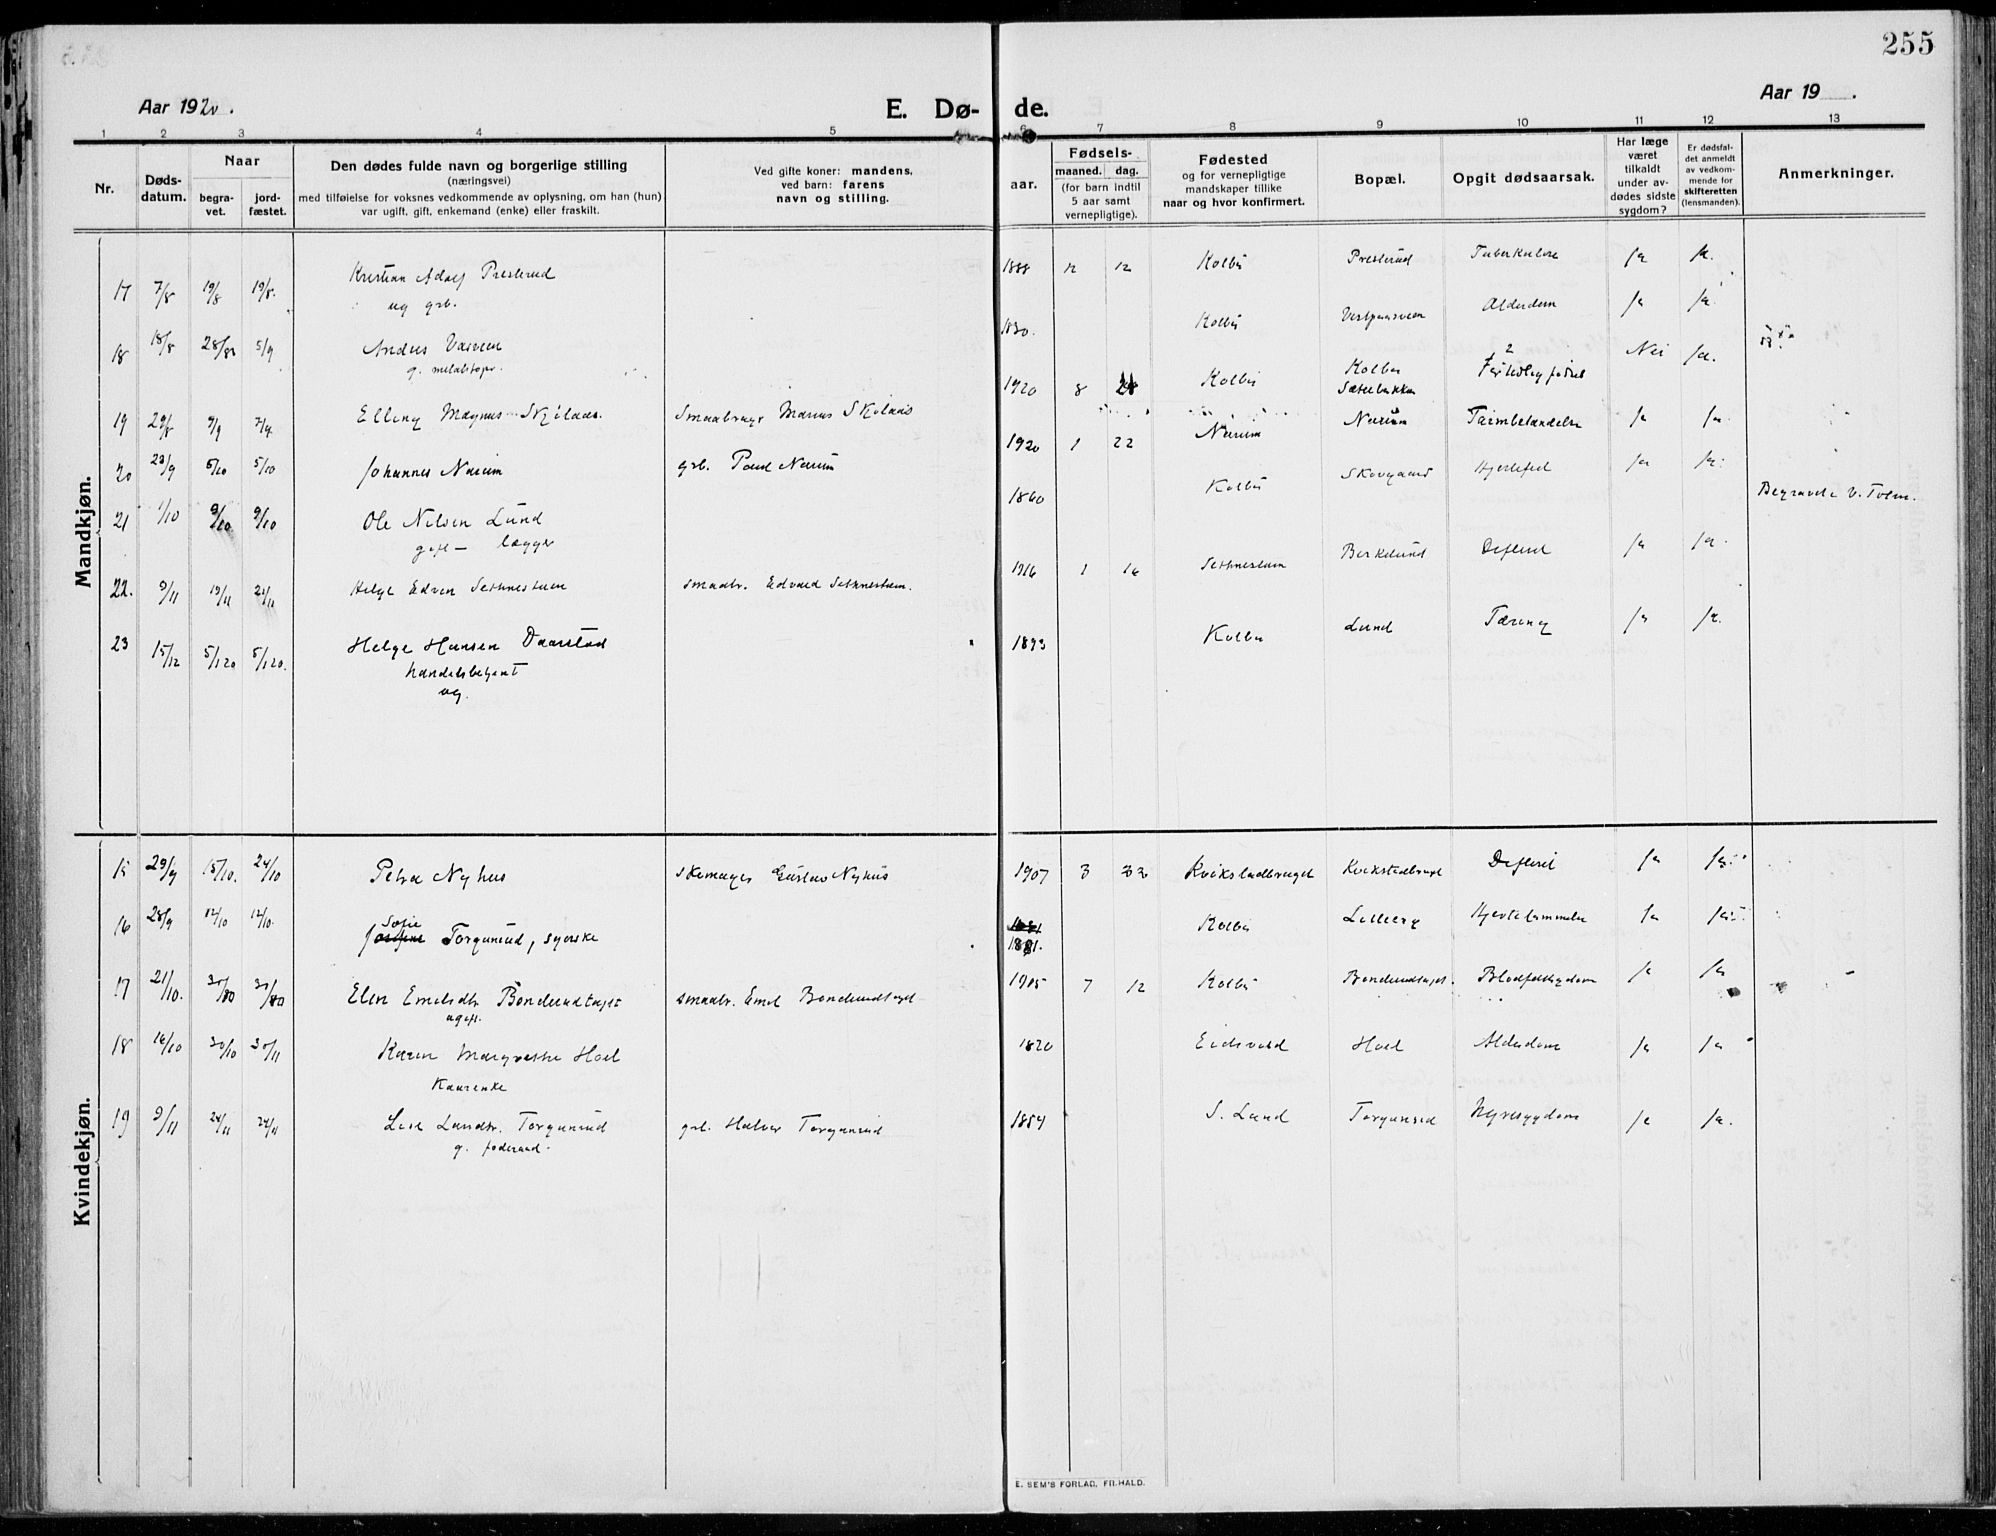 255
Aar 1920.
E. Dø-
de.
Aar 19 .
1 2 3 4 5 6 7 8 9 10 11 12 13
Nr.
Døds-
datum.
Naar
begra-
vet.
jord-
fæstet.
Den dødes fulde navn og borgerlige stilling
(næringsvei)
med tilføielse for voksnes vedkommende av oplysning, om han (hun)
var ugift, gift, enkemand (enke) eller fraskilt.
Ved gifte koner: mandens,
ved barn: farens
navn og stilling.
aar.
Fødsels-
maaned. dag.
(for barn indtil
5 aar samt
vernepligtige).
Fødested
og for vernepligtige
mandskaper tillike
naar og hvor konfirmert.
Bopæl.
Opgit dødsaarsak.
Har læge
været
tilkaldt
under av-
dødes sidste
sygdom?
Er dødsfal-
det anmeldt
av vedkom-
mende for
skifteretten
(lensmanden).
Anmerkninger.
Mandkjøn.
17 7/8 19/8 19/8. Kristian Adolf Presterud 1888 12 12 Kolbu Presterud Tuberkulose ja ja.
ug grb.
18 18/8 28/8 5/9 Anders 1830. Kolbu Alderdom ja ja.
g.
19 29/8 9/9 Elling Magnus Skjølaas. Smaabruger Marius Skølaas 1920 8 Kolbu Kolbu Nei ja.
20 23/9 5/10 5/10 Johannes Narum grb. Paul Narum 1920 1 22 Narum Narum Tarmbetændelse ja ja
21 1/10 9/10 9/10 Ole Nilsen Lund 1860 Kolbu Skovgaard Hjertefeil ja ja. Begravet v. Toten.
gift — lægger
22. 9/11 19/11 21/11 Helge Edvin Sethnestuen smaabr. Edvard Sethnestuen. 1916 1 16 Sethnestuen Berkelund Difterit ja ja.
23 15/12 5/1 20 5/1 20. Helge Hansen Daarstad 1893 Kolbu Lund Tæring ja ja.
handelsbetjent
ug.
Kvindekjøn.
15 29/9 15/10. 24/10 Petra Nyhus Skomager Gustav Nyhus 1907 3 22 Kvikstadbruget Kvikstadbruget Difterit ja ja
16 28/9 12/10 12/10. Sofie
Josefine Torgunrud, syerske 1881. Kolbu Lilleerg Hjertelammelse ja ja
17 21/10. Elen Emilsdtr Bonderudtajet smaabr. Emil Bonderudtajet 1905 7 12 Kolbu Bonderudtajet. Blodfeilsygdom ja ja
ugift.
18 16/10 30/10 30/11 Karen Margrethe Hoel 1820 Eidsvold Hoel Alderdom ja ja
Kaarenke
19 9/11 24/11 24/11 Lise Larsdtr. Torgunrud grb. Halvor Torgunrud 1854 S. Land Torgunrud Nyresygdom ja ja.
g. føderaad.
E. SEM'S FORLAG, FR.HALD.